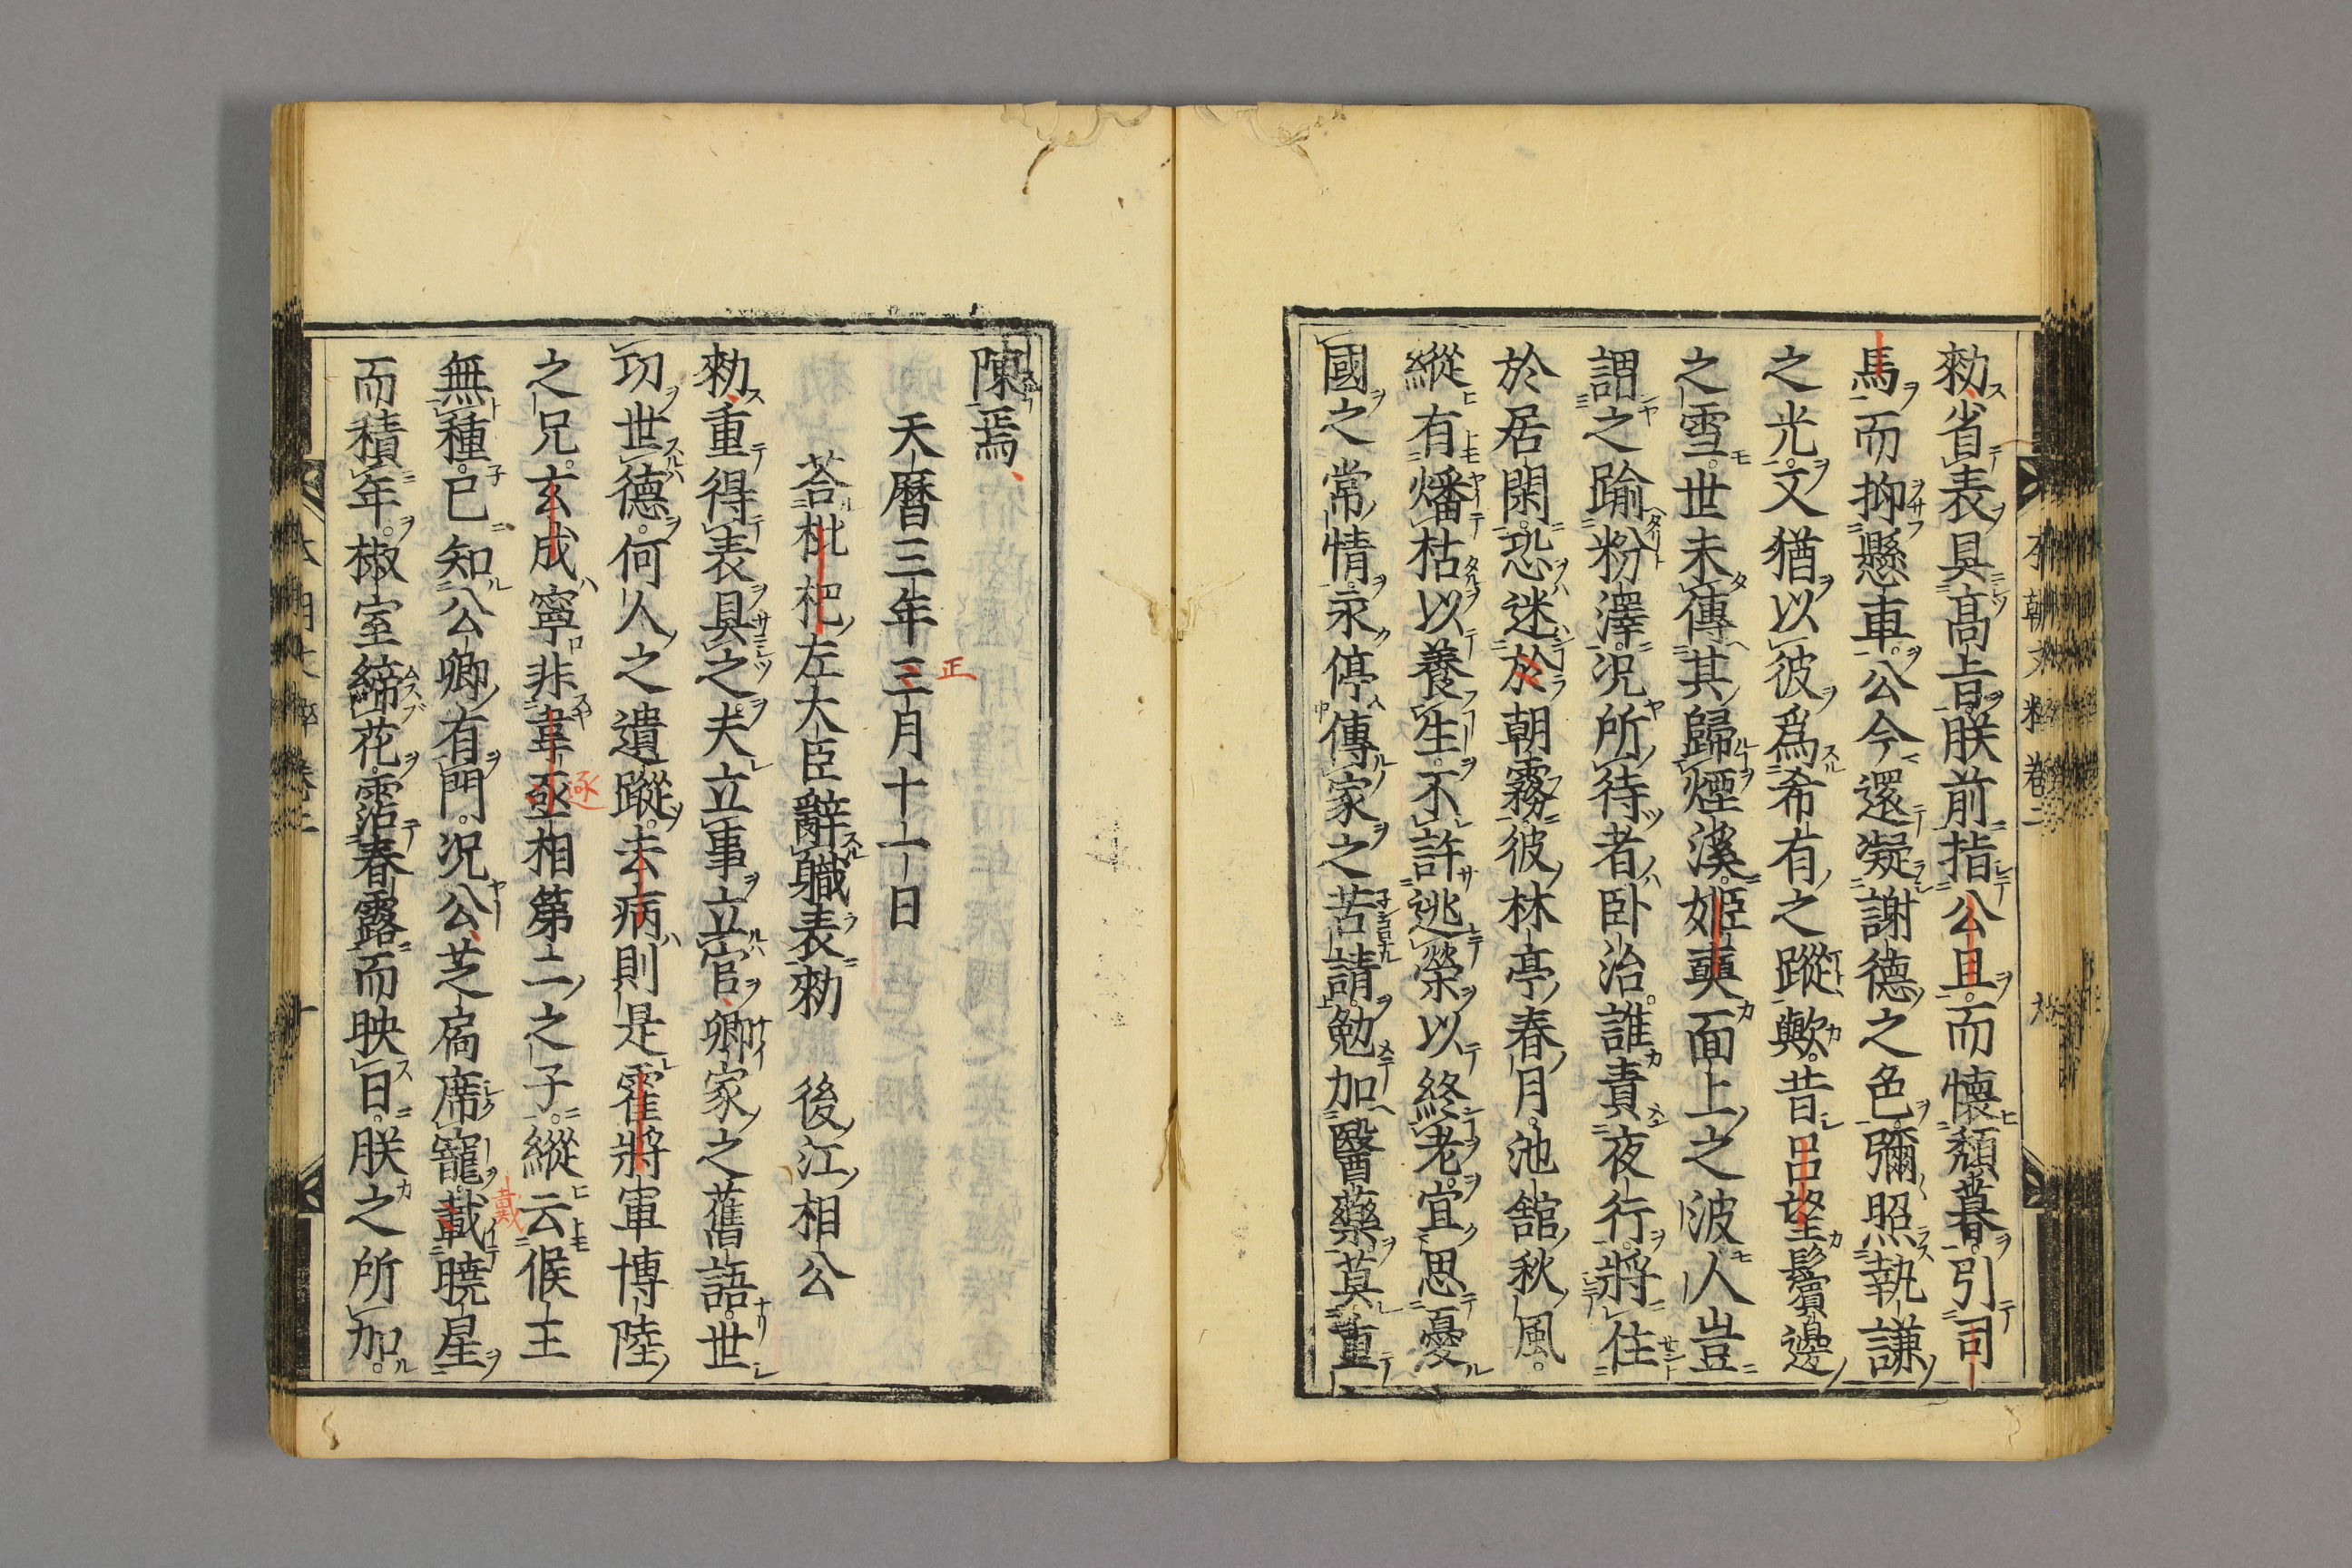 勅省表具高旨朕前指公且而懷頽暮引司
馬而抑懸車公今還凝謝德之色彌照執謙
之光文猶以彼爲希有之蹤歟昔呂望鬢邊
之雪世未傳其歸煙溪姬奭面上之波人豈
謂之踰粉澤況所待者卧治誰責夜行將住
於居閑恐迷於朝霧彼林亭春月池舘秋風
縱有燔枯以養生不許逃榮以終老宜思憂
國之常情永停傳家之苦請勉加醫藥莫重
陳焉
天曆三年三月十一日
正
荅枇杷左大臣辭職表勅　後江相公
勅重得表具之夫立事立官卿家之舊語世
功世德何人之遺蹤去病則是霍將軍博陸
之兄玄成寧非韋丞相第二之子縱云候王
無種已知公卿有門況公芝扃席寵載曉星
戴
而積年椒室締花霑春露而映日朕之所加
本朝文粹卷二